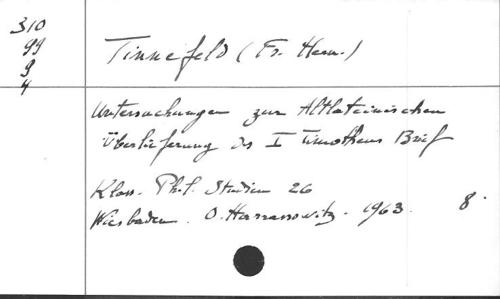 310
99
9
4
Tinnefeld (Fr. Herm.)
Untersuchungen zur Altlateinischen
Überlieferung des I Timotheus Brief
Klass. Phil. Studien 26
Wiesbaden. O. Harrassowitz. 1963. 8°